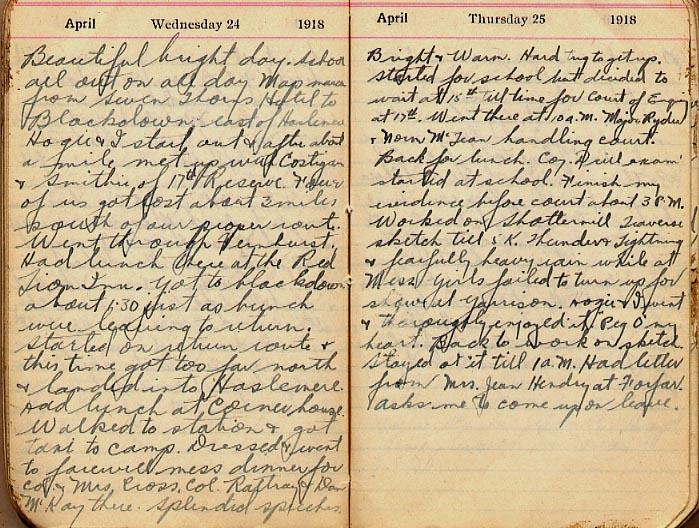 April Wednesday 24 1918
Beautiful bright day. School
all out on all day Map
from Seven Thorns Hotel to
Blackdown east of
Hogie & I start out & after about
a mile met up with Costigan
& Smithie of 17th Reserve. Four
of us got lost about 3 miles
south of our proper route.
Went through Fernhurst.
Had lunch there at the Red
Lion Inn. Got to blackdown
about 1:30 just as bunch
were leaving to return.
Started on return route &
this time got too far north
& landed into Haslemere.
Had lunch at Corner house.
Walked to station & got
taxi to camp. Dressed & went
to farewell mess dinner for
Col & Mrs. Cross. Col. Rattray & Dan
McKay there. Splendid speeches.
April Thursday 25 1918
Bright & Warm. Hard tug to get up.
Started for school but decided to
wait at 15th till time for Court of
at 17th. Went there at 10 a.m. Major Ryder
& Norm McLean handling court.
Back for lunch. Coy. Drill exam
started at school. Finish my
evidence before court about 3 P.M.
Worked on Shottermill Traverse
sketch till 5 K. Thunder & Lightning
& fearfully heavy rain while at
Mess. Girls failed to turn up for
show at Garrison. Hogie & I went
& thoroughly enjoyed it. Peg O' my
heart. Back to work on sketch.
Stayed at it till 1 a.M. Had letter
from Mrs. Jean Hendry at Forfar
asks me to come up on leave.